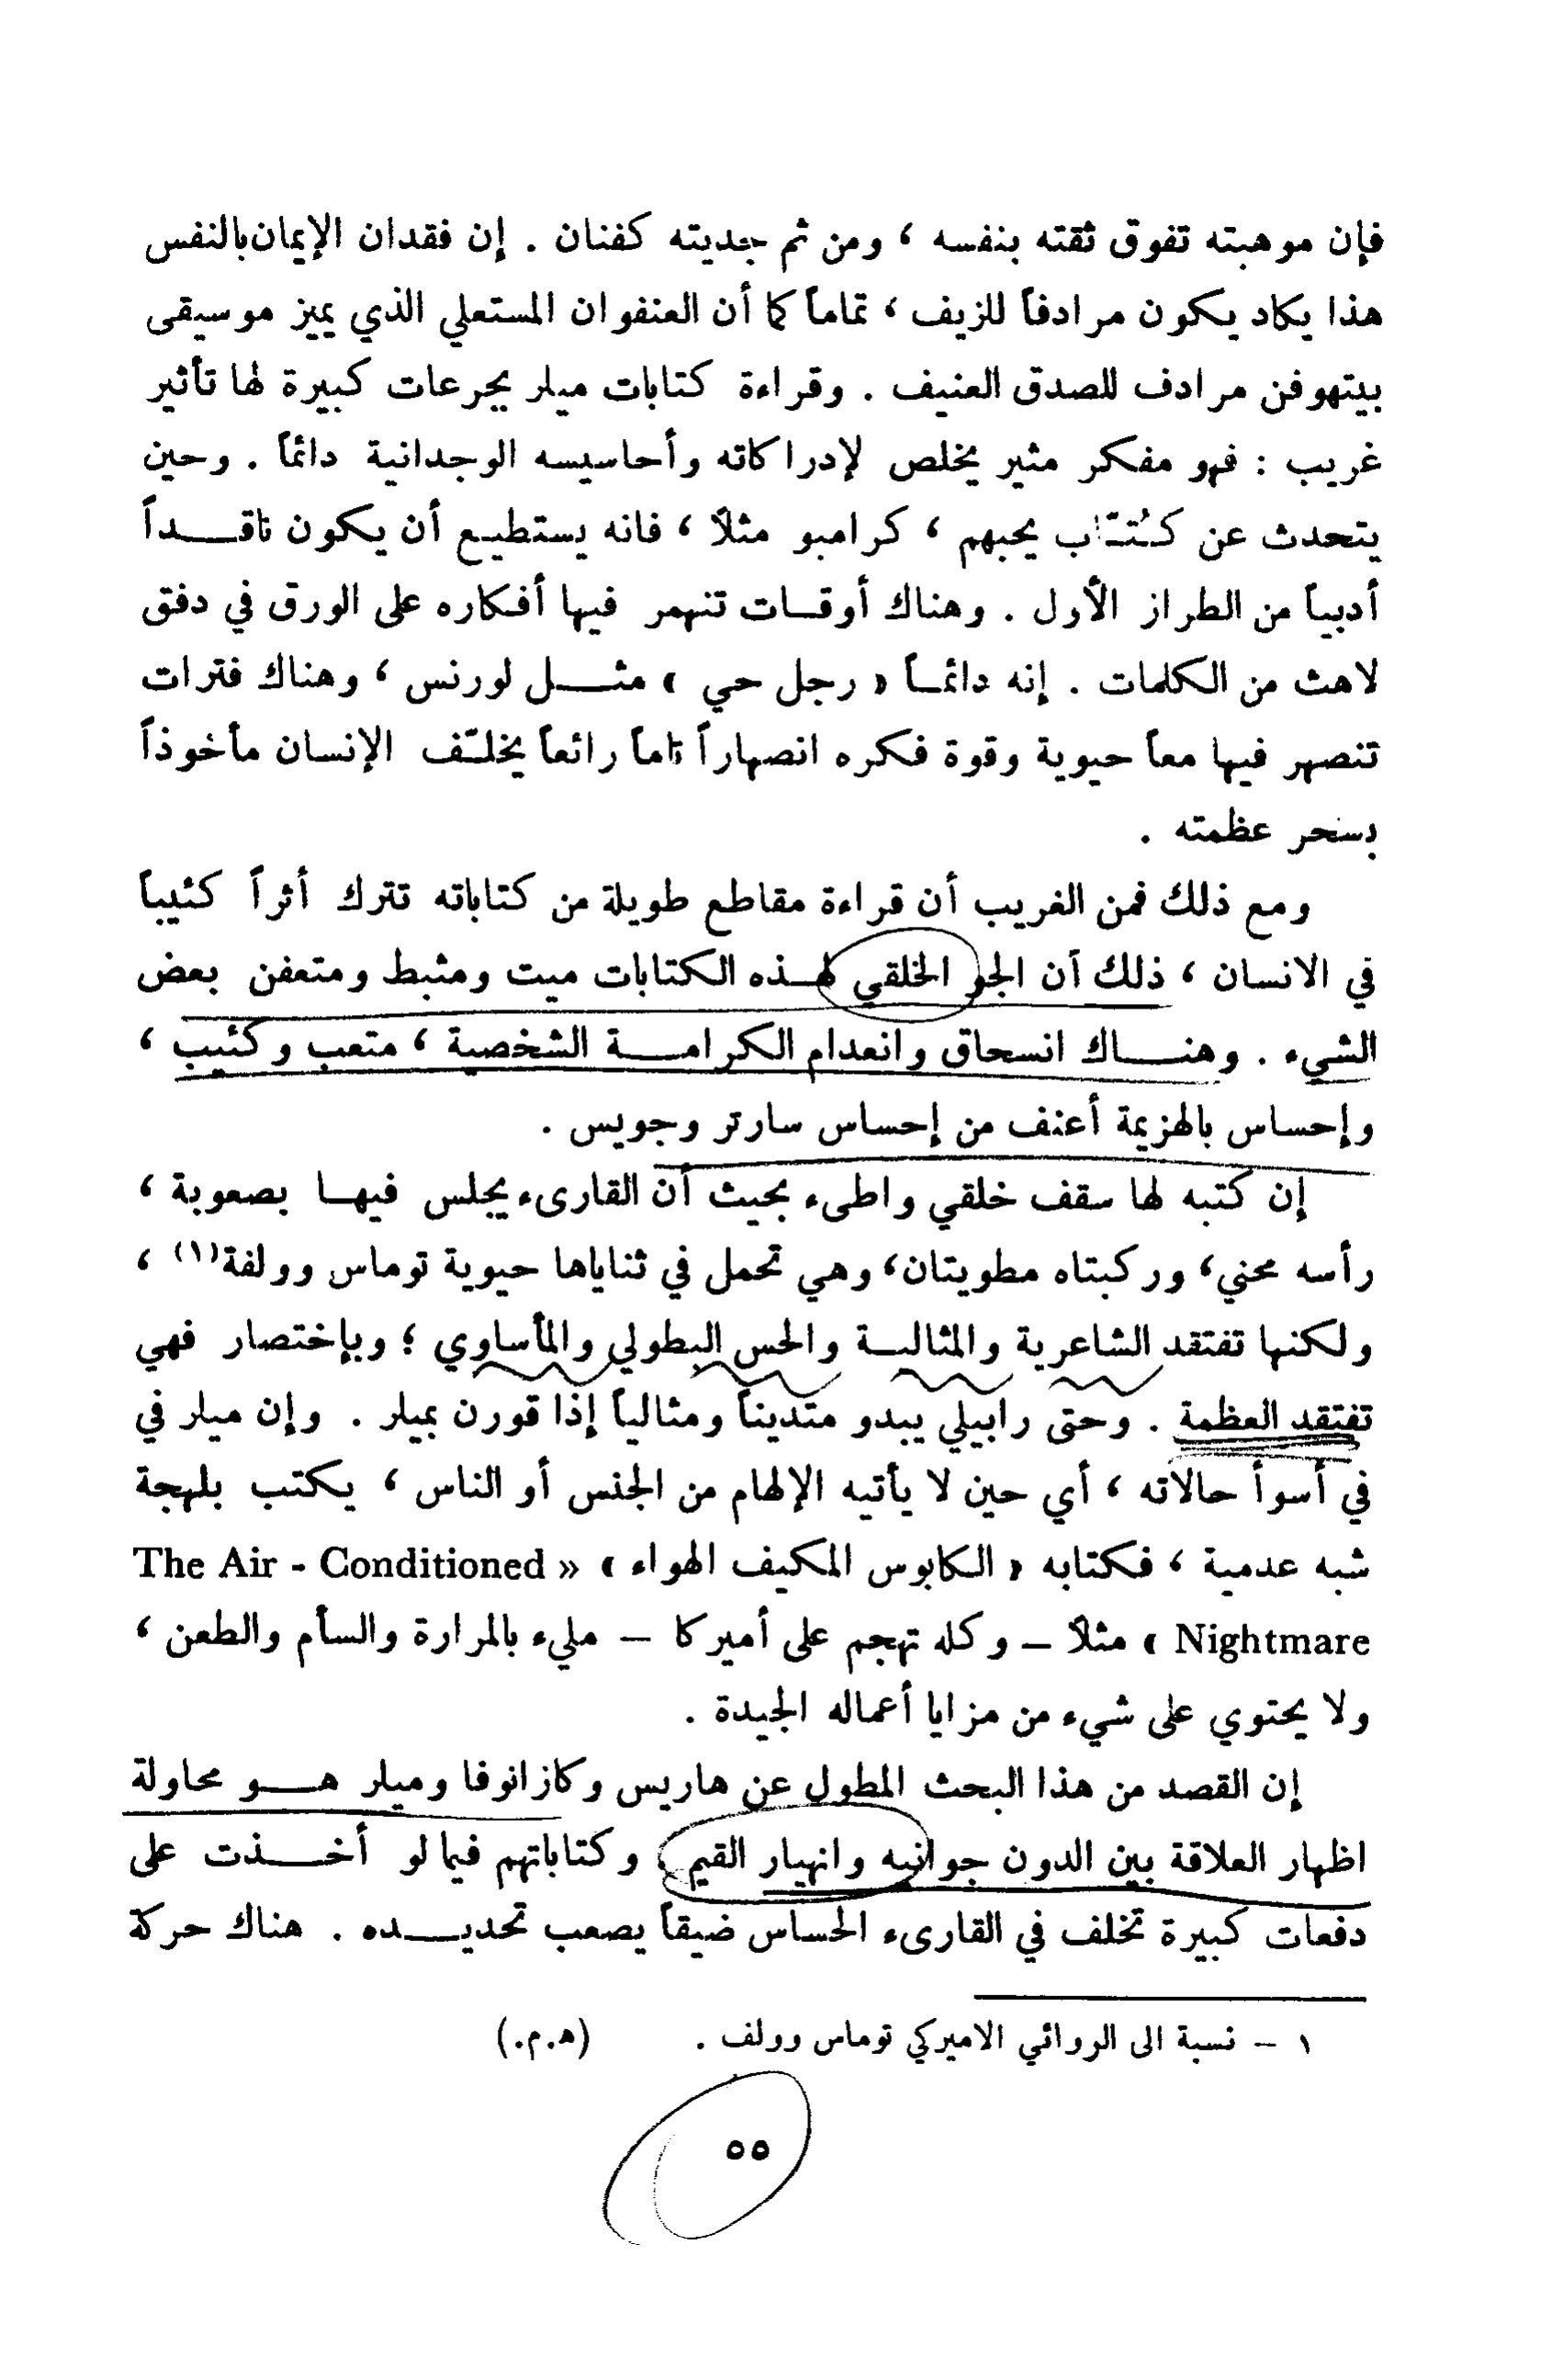 فإن موهبته تفوق ثقته بنفسه ، ومن ثم جديته كفنان . إن فقدان الإيمان بالنفس
هذا يكاد يكون مرادفاً للزيف ، تماماً كما أن العنفوان المستعلي الذي يميز موسيقى
بيتهوفن مرادف للصدق العنيف . وقراءة كتابات ميلر بجرعات كبيرة لها تأثير
غريب : فهو مفكر مثير يخلص لإدراكاته وأحاسيسه الوجدانية دائماً . وحين
يتحدث عن كُتّاب يحبهم ، كرامبو مثلاً ، فانه يستطيع أن يكون ناقداً
أدبياً من الطراز الأول . وهناك أوقات تنهمر فيها أفكاره على الورق في دفق
لاهث من الكلمات . إنه دائماً « رجل حي » مثل لورنس ، وهناك فترات
تنصهر فيها معاً حيوية وقوة فكره انصهاراً تاماً رائعاً يخلّف الإنسان مأخوذاً
بسحر عظمته .
ومع ذلك فمن الغريب أن قراءة مقاطع طويلة من كتاباته تترك أثراً كئيباً
في الانسان ، ذلك أن الجو الخلقي لهذه الكتابات ميت ومثبط ومتعفن بعض
الشيء . وهناك انسحاق وانعدام الكرامة الشخصية ، متعب وكئيب ،
وإحساس بالهزيمة أعنف من إحساس سارتر وجويس .
إن كتبه لها سقف خلقي واطىء بحيث أن القارىء يجلس فيها بصعوبة ،
رأسه محني، وركبتاه مطويتان، وهي تحمل في ثناياها حيوية توماس وولفة(١) ،
ولكنها تفتقد الشاعرية والمثالية والحس البطولي والمأساوي ؛ وبإختصار فهي
تفتقد العظمة . وحتى رابيلي يبدو متديناً ومثالياً إذا قورن بميلر . وإن ميلر في
في أسوأ حالاته ، أي حين لا يأتيه الإلهام من الجنس أو الناس ، يكتب بلهجة
شبه عدمية ، فكتابه « الكابوس المكيف الهواء » « The Air - Conditioned
Nightmare » مثلاً – وكله تهجم على أميركا – مليء بالمرارة والسأم والطعن ،
ولا يحتوي على شيء من مزايا أعماله الجيدة .
إن القصد من هذا البحث المطول عن هاريس وكازانوفا وميلر هو محاولة
اظهار العلاقة بين الدون جوانيه وانهيار القيم ، وكتاباتهم فيما لو أخذت على
دفعات كبيرة تخلف في القارىء الحساس ضيقاً يصعب تحديده . هناك حركة
١ – نسبة الى الروائي الاميركي توماس وولف . (ه.م.)
٥٥